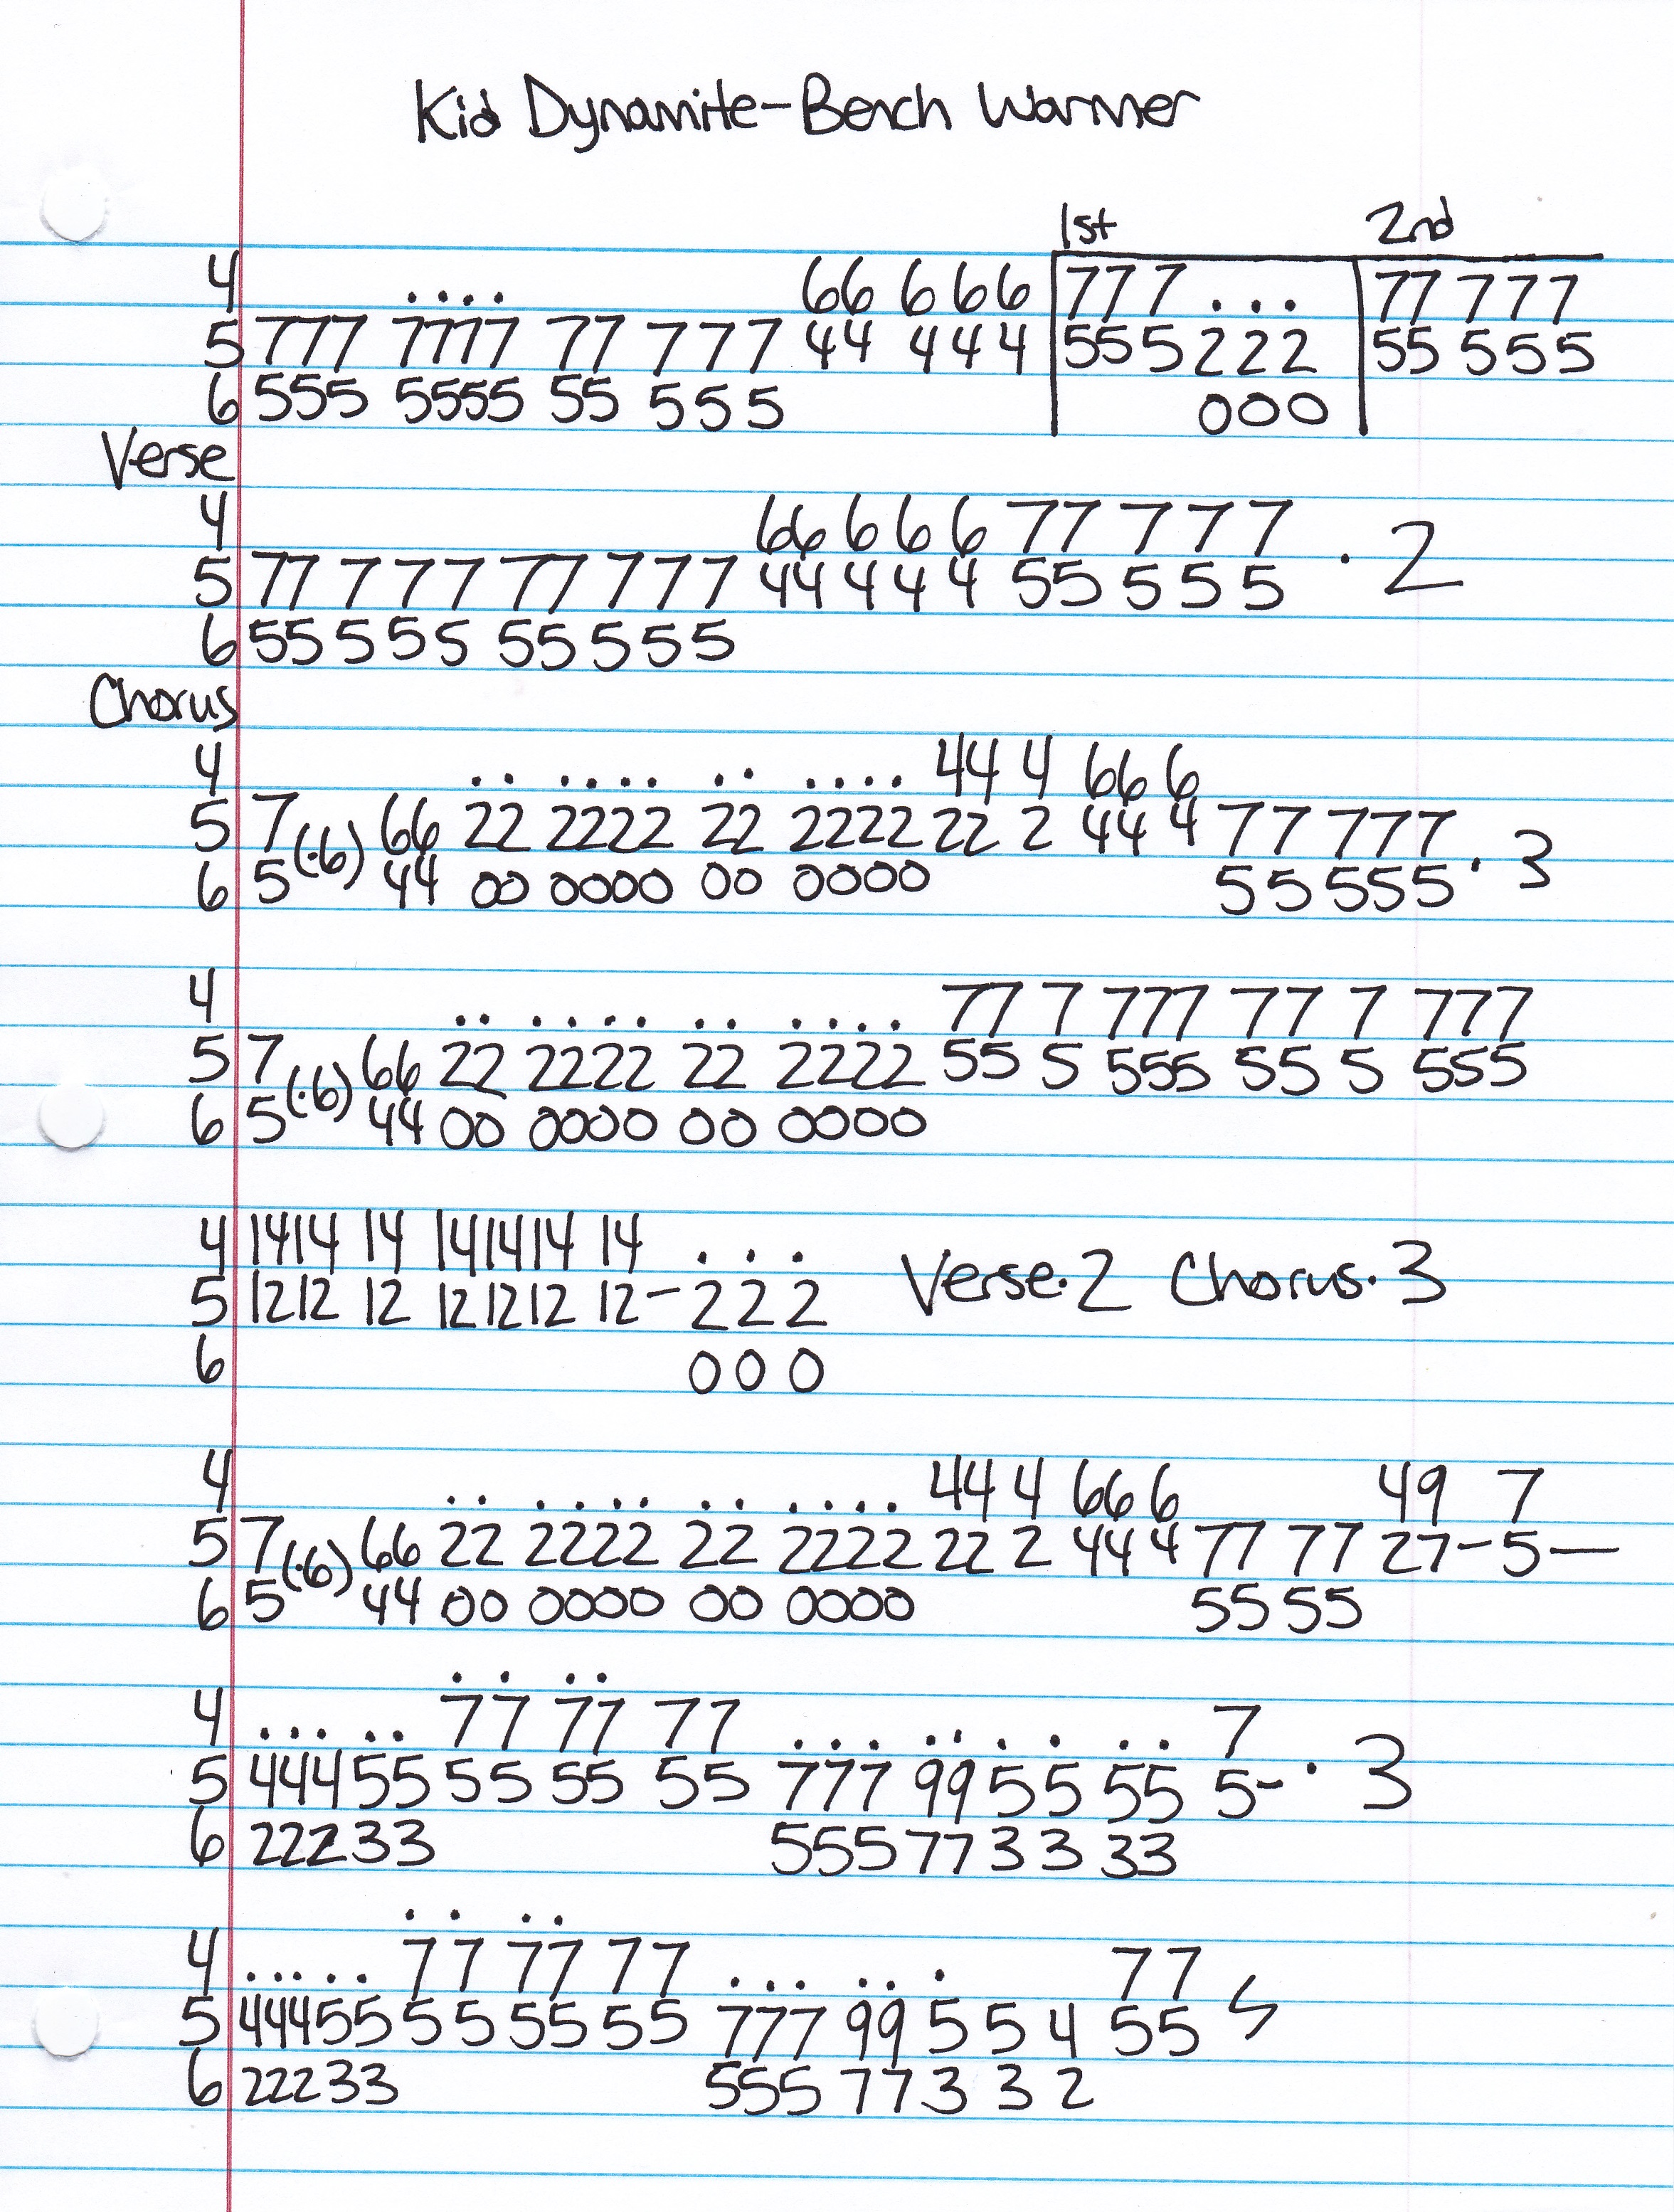 Kid Dynamite-Bench Warmer
1st 2nd
4 .... 66 6 6 6 777 ... 77 777
5 777 7777 77 777 44 4 4 4 555 222 55 555
6 555 5555 55 555 000
Verse
4 66 6 6 6 77 7 7 7
5 77 7 7 7 77 7 7 7 44 4 4 4 55 5 5 5 · 2
6 55 5 5 5 55 5 5 5
Chorus
4 .. .... .. .... 44 4 66 6
5 7 (·6) 66 22 2222 22 2222 22 2 44 4 77 777 · 3
6 5 44 00 0000 00 0000 55 555
4 .. .... .. .... 77 7 777 77 7 777
5 7 (·6) 66 22 2222 22 2222 55 5 555 55 5 555
6 5 44 00 0000 00 0000
4 1414 14 141414 14 . . .
5 1212 12 121212 12- 2 2 2 Verse·2 Chorus·3
6 0 0 0
4 .. .... .. .... 44 4 66 6 49 7
5 7 (·6) 66 22 2222 22 2222 22 2 44 4 77 77 27-5—
6 5 44 00 0000 00 0000 55 55
. . ..
4 ... .. 77 77 77 ... .. . . .. 7
5 444 55 55 55 55 777 99 5 5 55 5- · 3
6 222 33 555 77 3 3 33
. . ..
4 ... .. 77 77 77 ... .. . 77
5 444 55 55 55 55 777 99 5 5 4 55
6 222 33 555 77 3 3 2